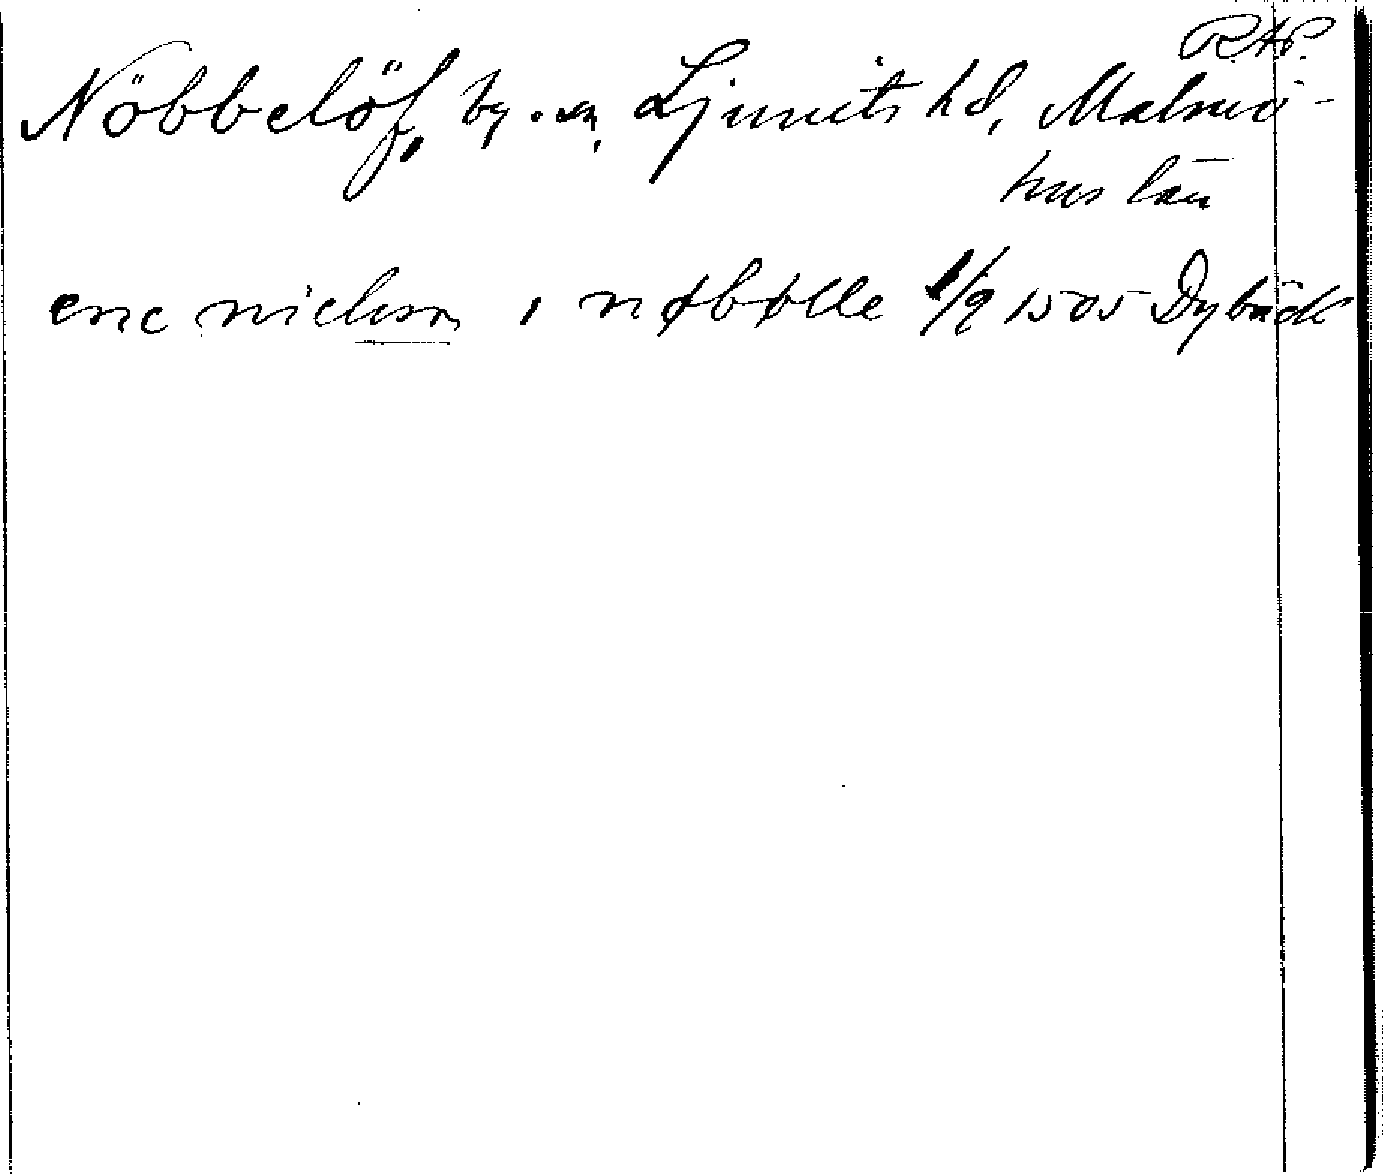 RAP.
Nöbbelöf, by o. sn, Ljunits hd, Malmö-
hus län
eric nielsson i nøbølle 1/9 1505 Dybäck